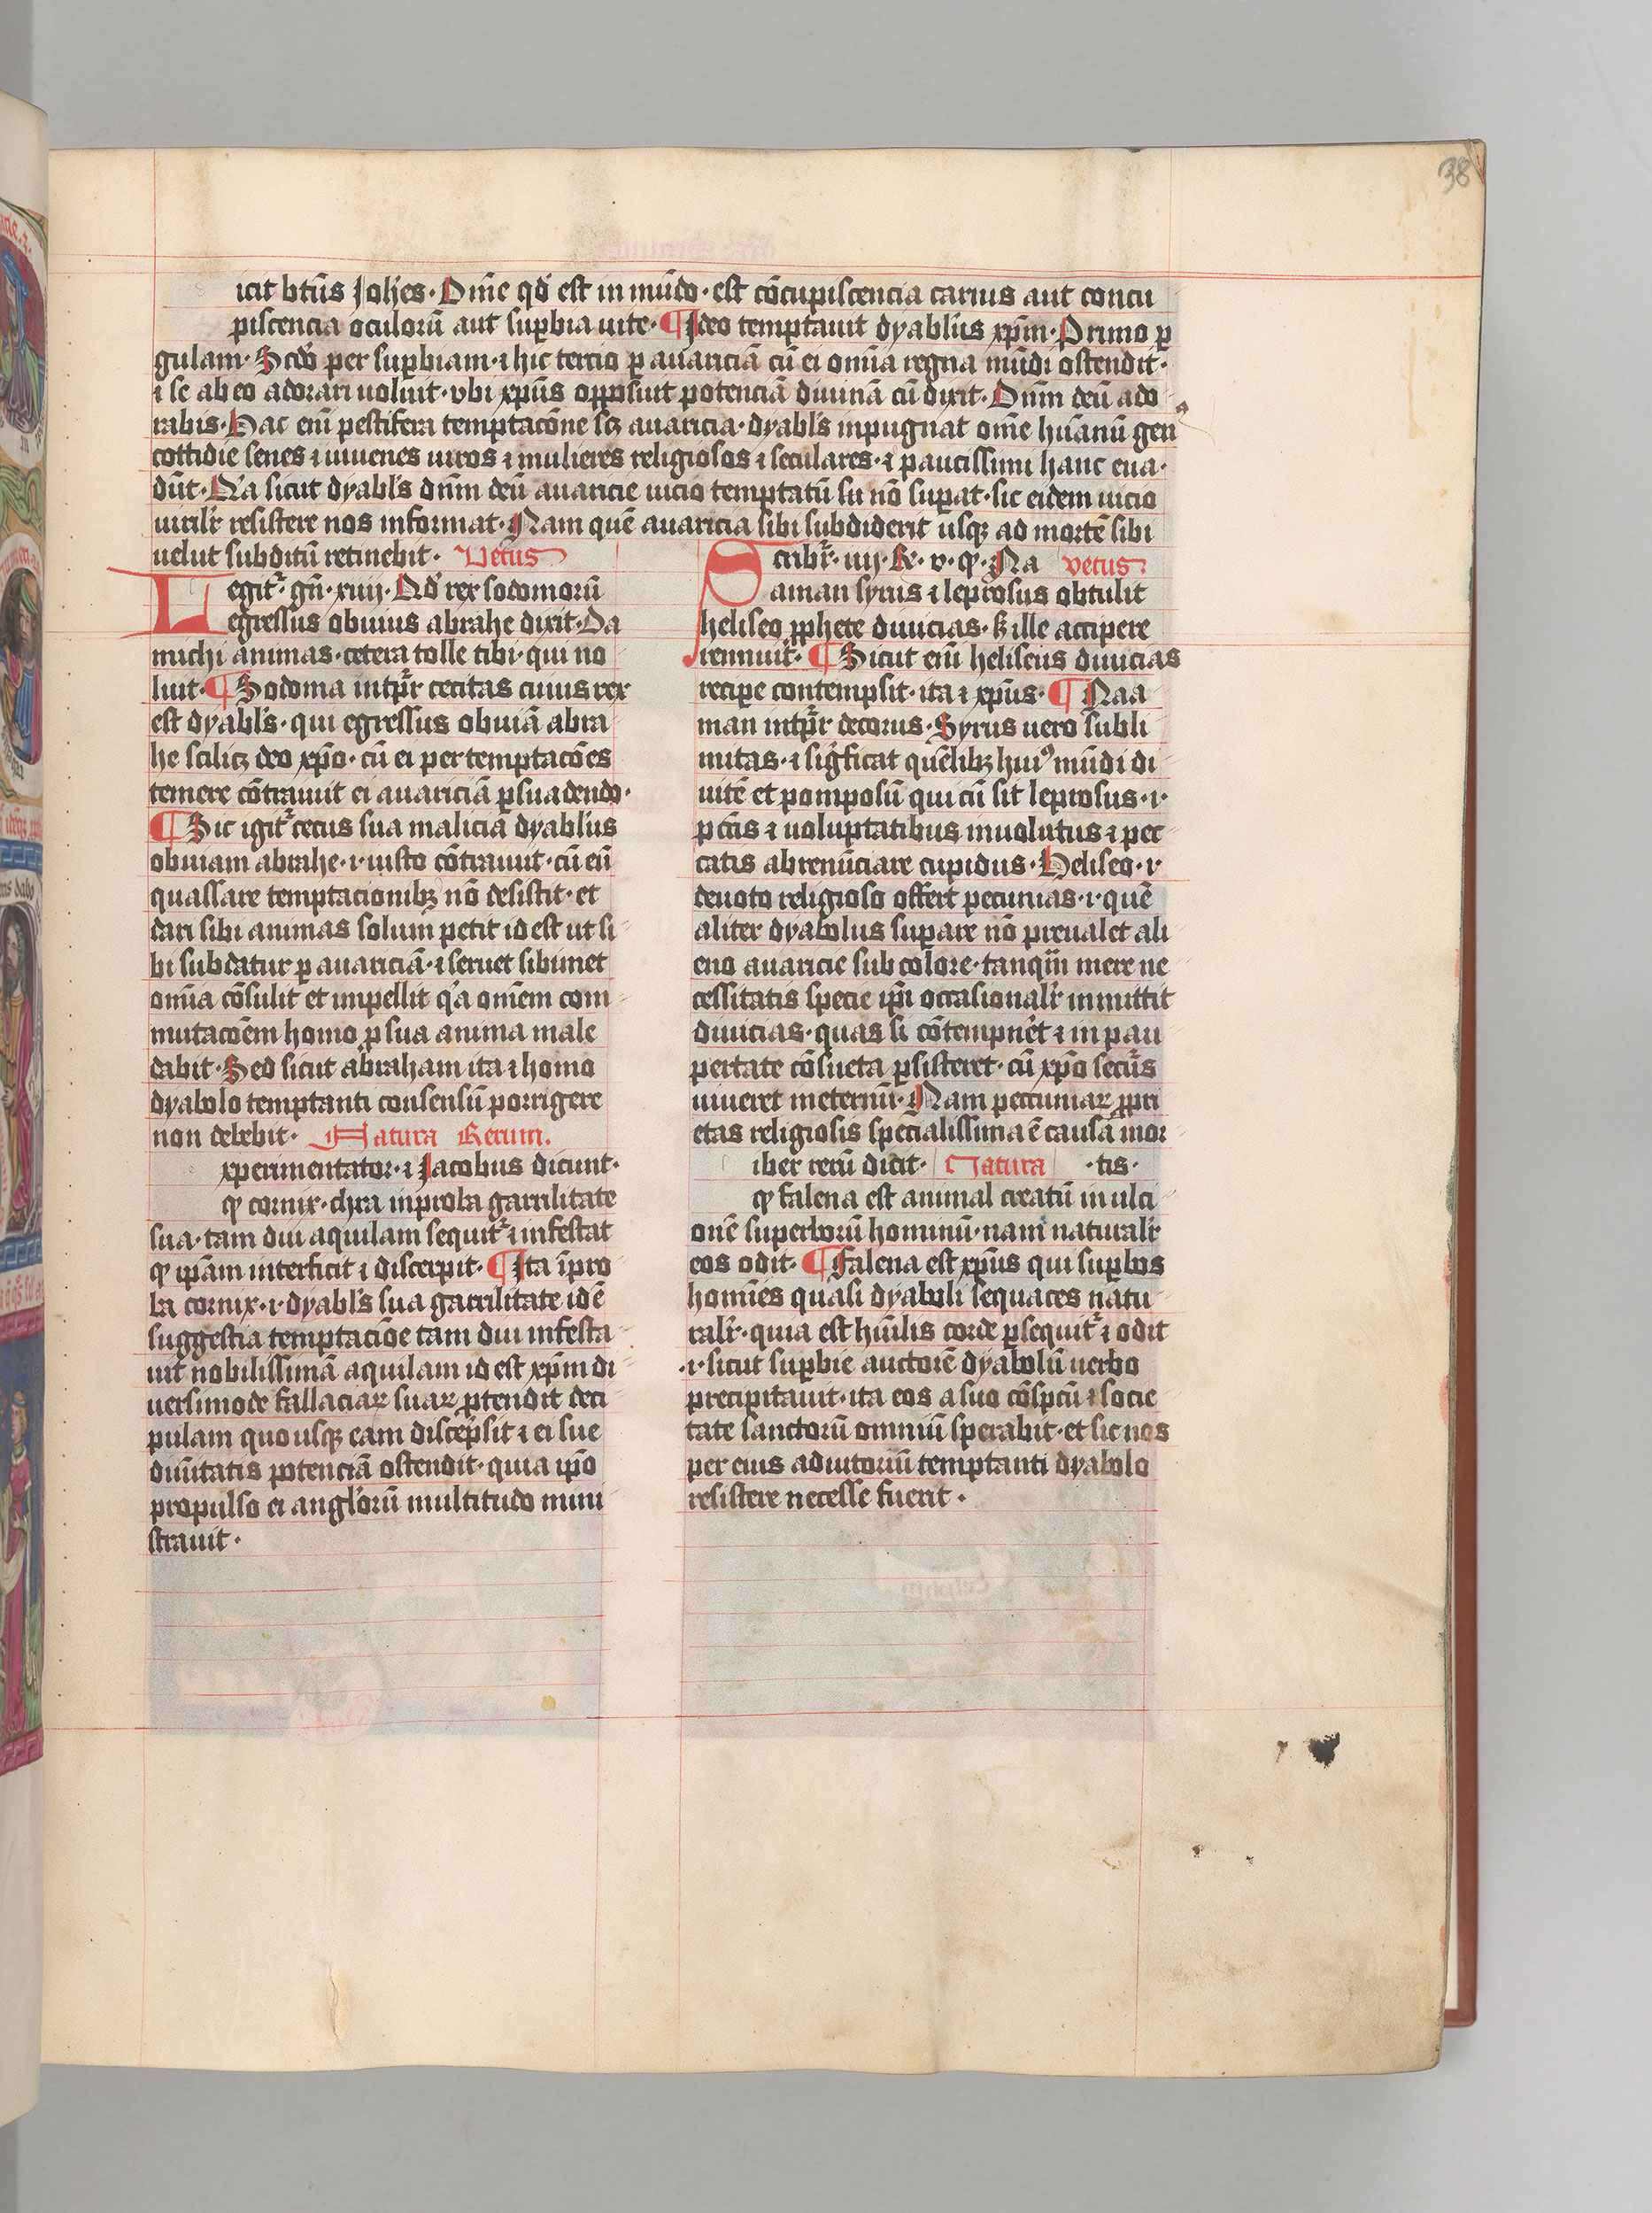 38
icit btūs Joħes · Om̄e qđ est in mūdo · est cōcupiscencia carnis aut concu
piscencia oculorū aut suꝑbia uite · ¶ Ideo temptauit dyablus xp̄m · Primo ꝑ
gulam · Scdō per suꝑbiam · ⁊ hic tercio ꝑ auariciā cū ei om̄ia regna mūdi ostendit ·
⁊ se ab eo adorari uoluit · vbi xp̄us opposuit potenciā diuinā cū dixit · Dn̄m deū ado
rabis · Hac eni̅ pestifera temptacōne scꝫ auaricia · dyabls inpugnat om̄e hūanū gen⁹
cottidie senes ⁊ iuuenes uiros ⁊ mulieres religiosos ⁊ seculares · ⁊ paucissimi hanc eua ·
dūt · Na sicut dyabls dn̄m deū auaricie uicio temptatū su nō suꝑat · sic eidem uicio
uirilr resistere nos informat · Nam quē auaricia sibi subdiderit usqꝫ ad mortē sibi
uelut subditū retinebit · Vetus
Legitr · gn̄ · xiiii · Qđ rex sodomorū
egressus obuius abrahe dixit · Da
michi animas · cetera tolle tibi · qui no
luit · ¶ Sodoma intp̄r cecitas cuius rex
est dyabls · qui egressus obuiā abra
he scilicꝫ deo xp̄o · cū ei per temptacōes
temere cōtrauit ei auariciā ꝑsuadendo ·
¶ Sic igitr cecus sua malicia dyablus
obuiam abrahe · i · iusto cōtrauit · cū eū
quassare temptacionibꝫ nō desistit · et
dari sibi animas solum petit id est ut si
bi subdatur ꝑ auariciā · ⁊ seruet sibimet
om̄ia cōsulit et impellit qa om̄em com
mutacōem homo ꝓ sua anima male
dabit · Sed sicut abraham ita ⁊ homo
dyabolo temptanti consensū porrigere
non debebit · Natura Rerum.
xperimentator · ⁊ Jacobus dicunt ·
ꝙ cornix · cħra inproba garrilitate
sua · tam diu aquilam sequitr ⁊ infestat
ꝙ ip̄am interficit ⁊ discerpit · ¶ Ita īpro
ba cornix · i · dyabls sua garrilitate id ē
suggestia temptaciōe tam diu infesta
uit nobilissimā aquilam id est xp̄m di
uersimode fallaciaꝝ suaꝝ ꝓtendit deci
pulam quousqꝫ eam discepsit ⁊ ei sue
diuītatis potenciā ostendit · quia ip̄o
propulso ei anglorū multitudo mini
strauit ·
Scribr · iiij · R · v · ꝙ · Na vetus
aman syrus ⁊ leprosus obtulit
heliseo ꝓphete diuicias · s; ille accipere
rennuit · ¶ Sicut eni̅ heliseus diuicias
recipe contempsit · ita ⁊ xp̄us · ¶ Naa
man intp̄r decorus · Syrus uero subli
mitas · ⁊ sigficat quēlibꝫ hui⁹ mūdi di
uitē et pomposū qui cū sit leprosus · i ·
pctīs ⁊ uoluptatibus inuolutus ⁊ pec
catis abrenūciare cupidus · Heliseo · i ·
deuoto religioso offert pecunias · i · quē
aliter dyabolus suꝑare nō preualet ali
eno auaricie sub colore · tanqm̄ mere ne
cessitatis specie ip̄i occasionalr inmittit
diuicias · quas si cōtempnet ⁊ in pau
pertate cōsueta ꝑsisteret · cū xp̄o securs
uiueret in eternū · Nam peccuniaꝝ ꝓpri
etas religiosis specialissima ē causa mor
iber rerū dicit · Natura · tis ·
ꝙ falena est animal creatū in ulci
onē superborū hominū · nam naturalr
eos odit · ¶ Falena est xp̄us qui suꝑbos
homīes quasi dyaboli sequaces natu
ralr · quia est hūilis corde ꝑsequitr ⁊ odit
· i · sicut suꝑbie auctorē dyabolū uerbo
precipitauit · ita eos a suo cōspcū ⁊ socie
tate sanctorū omniū sperabit · et sic nos
per eius adiutoriū temptanti dyabolo
resistere necesse fuerit ·